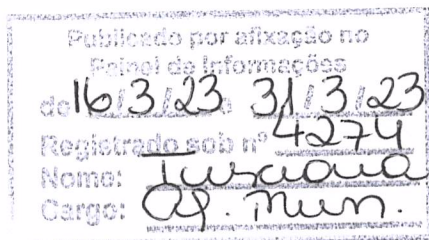 Publicado por afixação no
Painel de Informações
de 16/3/23 a 31/3/23
Registrado sob nº 4274
Nome:
Cargo: Ag. Mun.